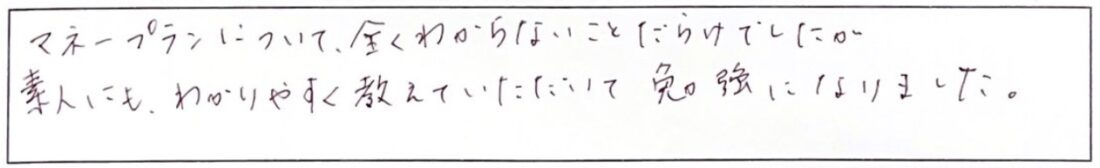 マネープランについて、全くわからないことだらけでしたが
素人にも、わかりやすく教えていただいて 勉強になりました。